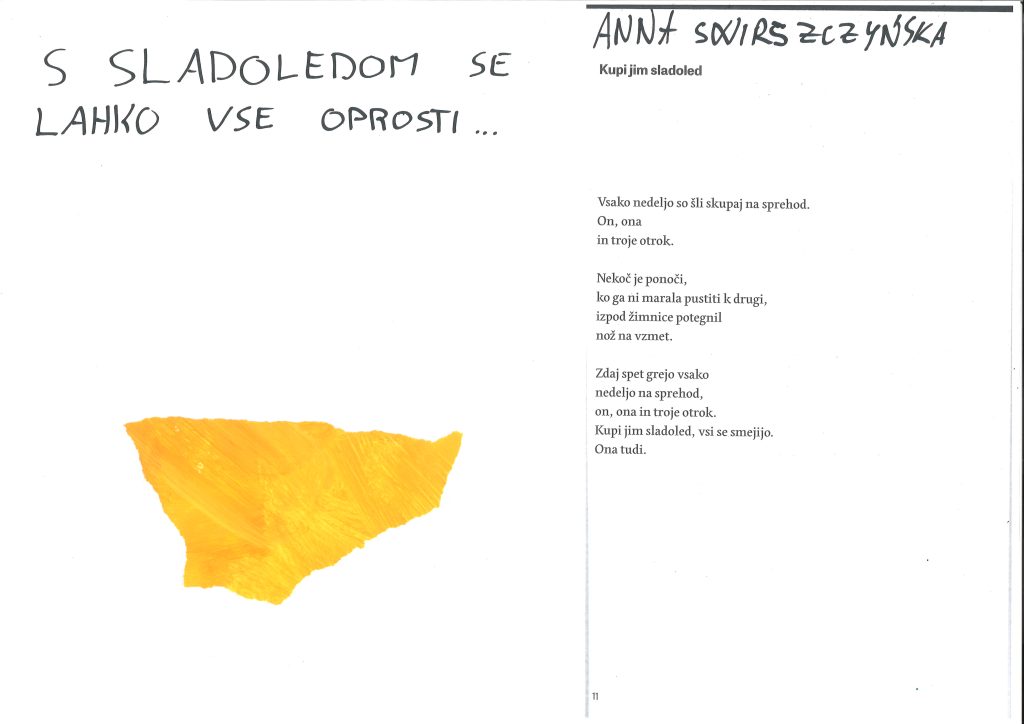 S SLADOLEDOM SE
LAHKO VSE OPROSTI...
ANNA SWIRSZCZYŃSKA
Kupi jim sladoled
Vsako nedeljo so šli skupaj na sprehod.
On, ona
in troje otrok.
Nekoč je ponoči,
ko ga ni marala pustiti k drugi,
izpod žimnice potegnil
nož na vzmet.
Zdaj spet grejo vsako
nedeljo na sprehod,
on, ona in troje otrok.
Kupi jim sladoled, vsi se smejijo.
Ona tudi.
11